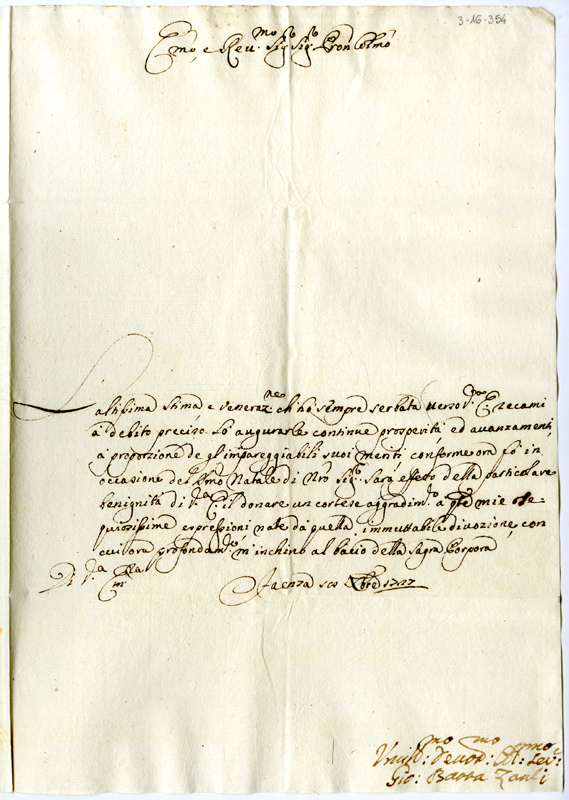 3-16-354
Em̃o, e Reu.mo Sig.r Sig.r Pron Colm̃o
L'altissima stima, e veneraz.ne ch'hò sempre serbata uerso V.ra E. recami
à debito preciso lo augurarle continue prosperità, ed auanzamenti,
à proporzione degl'impareggiabili suoi meriti, conforme ora fò in
occasione del Natale di Nr̃o Sig.re Sarà effetto della particolare
benignità di V.ra E. il donare un cortese aggradim.to a q̃ste mie osse-
quiosissime espressioni nate da quella immuttabile diuozione, con
cui ora profondam.te m'inchino al bacio della Sagra Porpora
Di V.ra Em.za
Faenza Xbre 1727
Umil.mo Deuot.mo Ser.
Gio: Batta Zanli